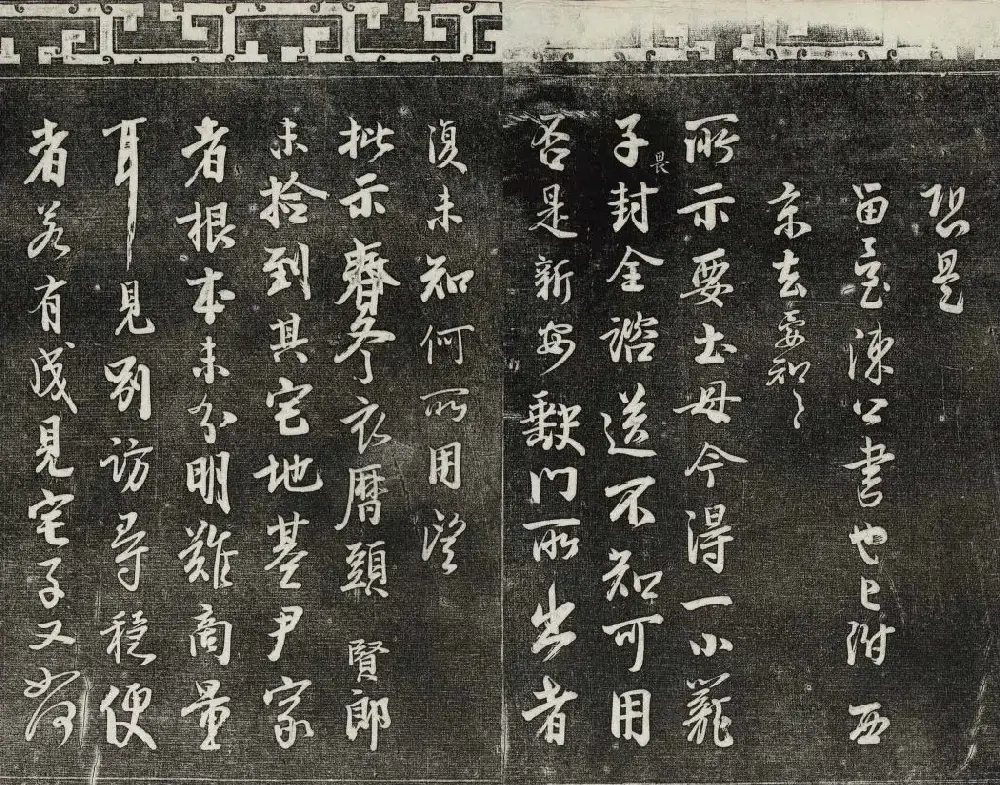 恐是
留臺陳公書也已附 西
京去要知々
所示要土母今得一小籠
子封全諮送不知可用
畏
否是新安門所出者
復未知何所用望
批示齎冬衣曆頭 賢郎
未拾到其宅地基尹家
者根本未分明難商量
耳見別訪尋穩便
者若有成見宅子又如何